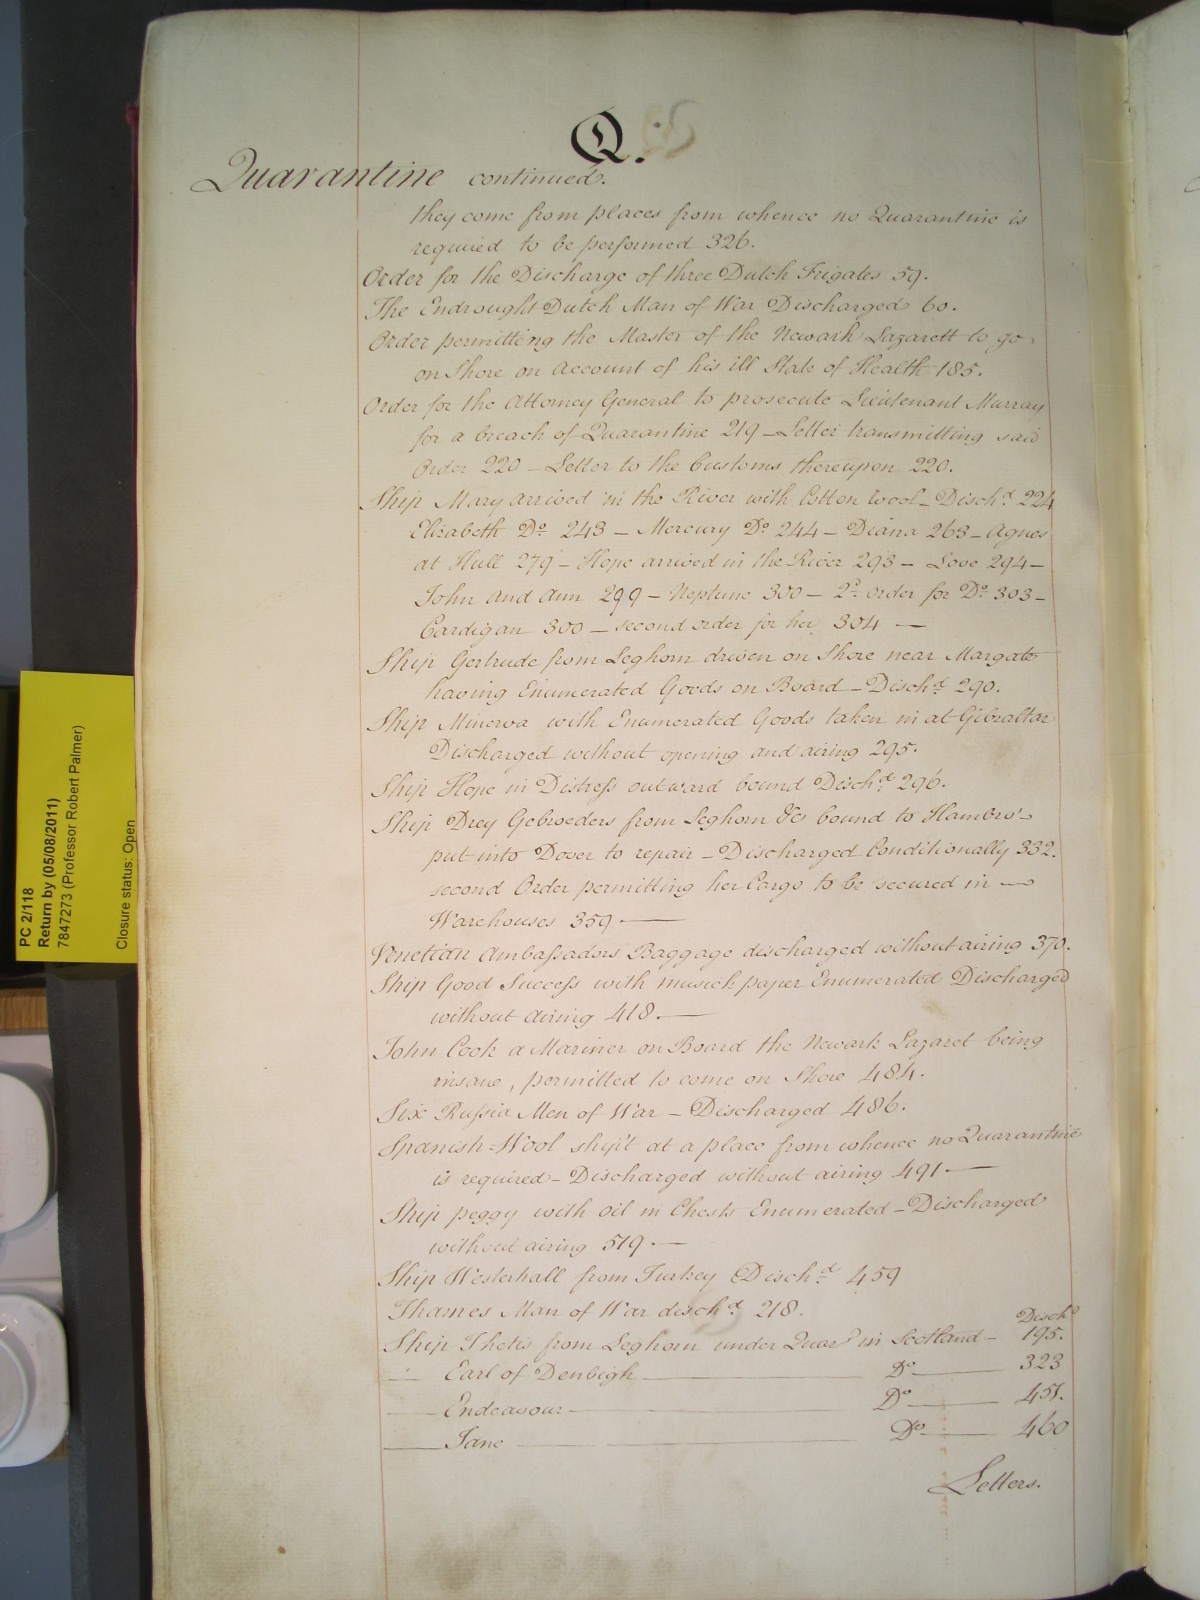 Q.
Quarantine continued.
they come from places from whence no Quarantine is
required to be performed 326.
Order for the Discharge of three Dutch Frigates 59.
The Endrought Dutch Man of War Discharged 60.
Order permitting the Master of the Newark Lazarett to go
on Shore on Account of his ill State of Health 185.
Order for the Attorney General to prosecute Lieutenant Murray
for a breach of Quarantine 219 – Letter transmitting said
Order 220 – Letter to the Customs thereupon 220.
Ship Mary arrived in the River with Cotton Wool – Dischd. 224
Elizabeth Do. 243 – Mercury Do. 244 – Diana 263 – Agnes
at Hull 279 – Hope arrived in the River 293 – Love 294 –
John and Ann 299 – Neptune 300 – 2d. Order for Do. 303 –
Cardigan 300 – second order for her 304 —
Ship Gertrude from Leghorn driven on Shore near Margate
having Enumerated Goods on Board – Dischd. 290.
Ship Minerva with Enumerated Goods taken in at Gibraltar
Discharged without opening and airing 295.
Ship Hope in Distress outward bound Dischd. 296.
Ship Drey Gebroeders from Leghorn &c bound to Hambro'
put into Dover to repair – Discharged Conditionally 332.
second Order permitting her Cargo to be secured in —
Warehouses 359 —
Venetian Ambassadors Baggage discharged without airing 370.
Ship Good Success with musick paper Enumerated Discharged
without airing 418. —
John Cook a Mariner on Board the Newark Lazaret being
insane, permitted to come on Shore 484.
Six Russia Men of War – Discharged 486.
Spanish=Wool ship't at a place from whence no Quarantine
is required – Discharged without airing 491 —
Ship Peggy with oil in Chests Enumerated – Discharged
without airing 519. —
Ship Westerhall from Turkey Dischd. 459
Thames Man of War dischd. 218.
Dischd
Ship Thetis from Leghorn under Quar in Scotland – 195.
— Earl of Denbigh — Do — 323
— Endeavour — Do — 451.
— Jane — Do — 460
Letters.
PC 2/118
Return by (05/08/2011)
7847273 (Professor Robert Palmer)
Closure status: Open